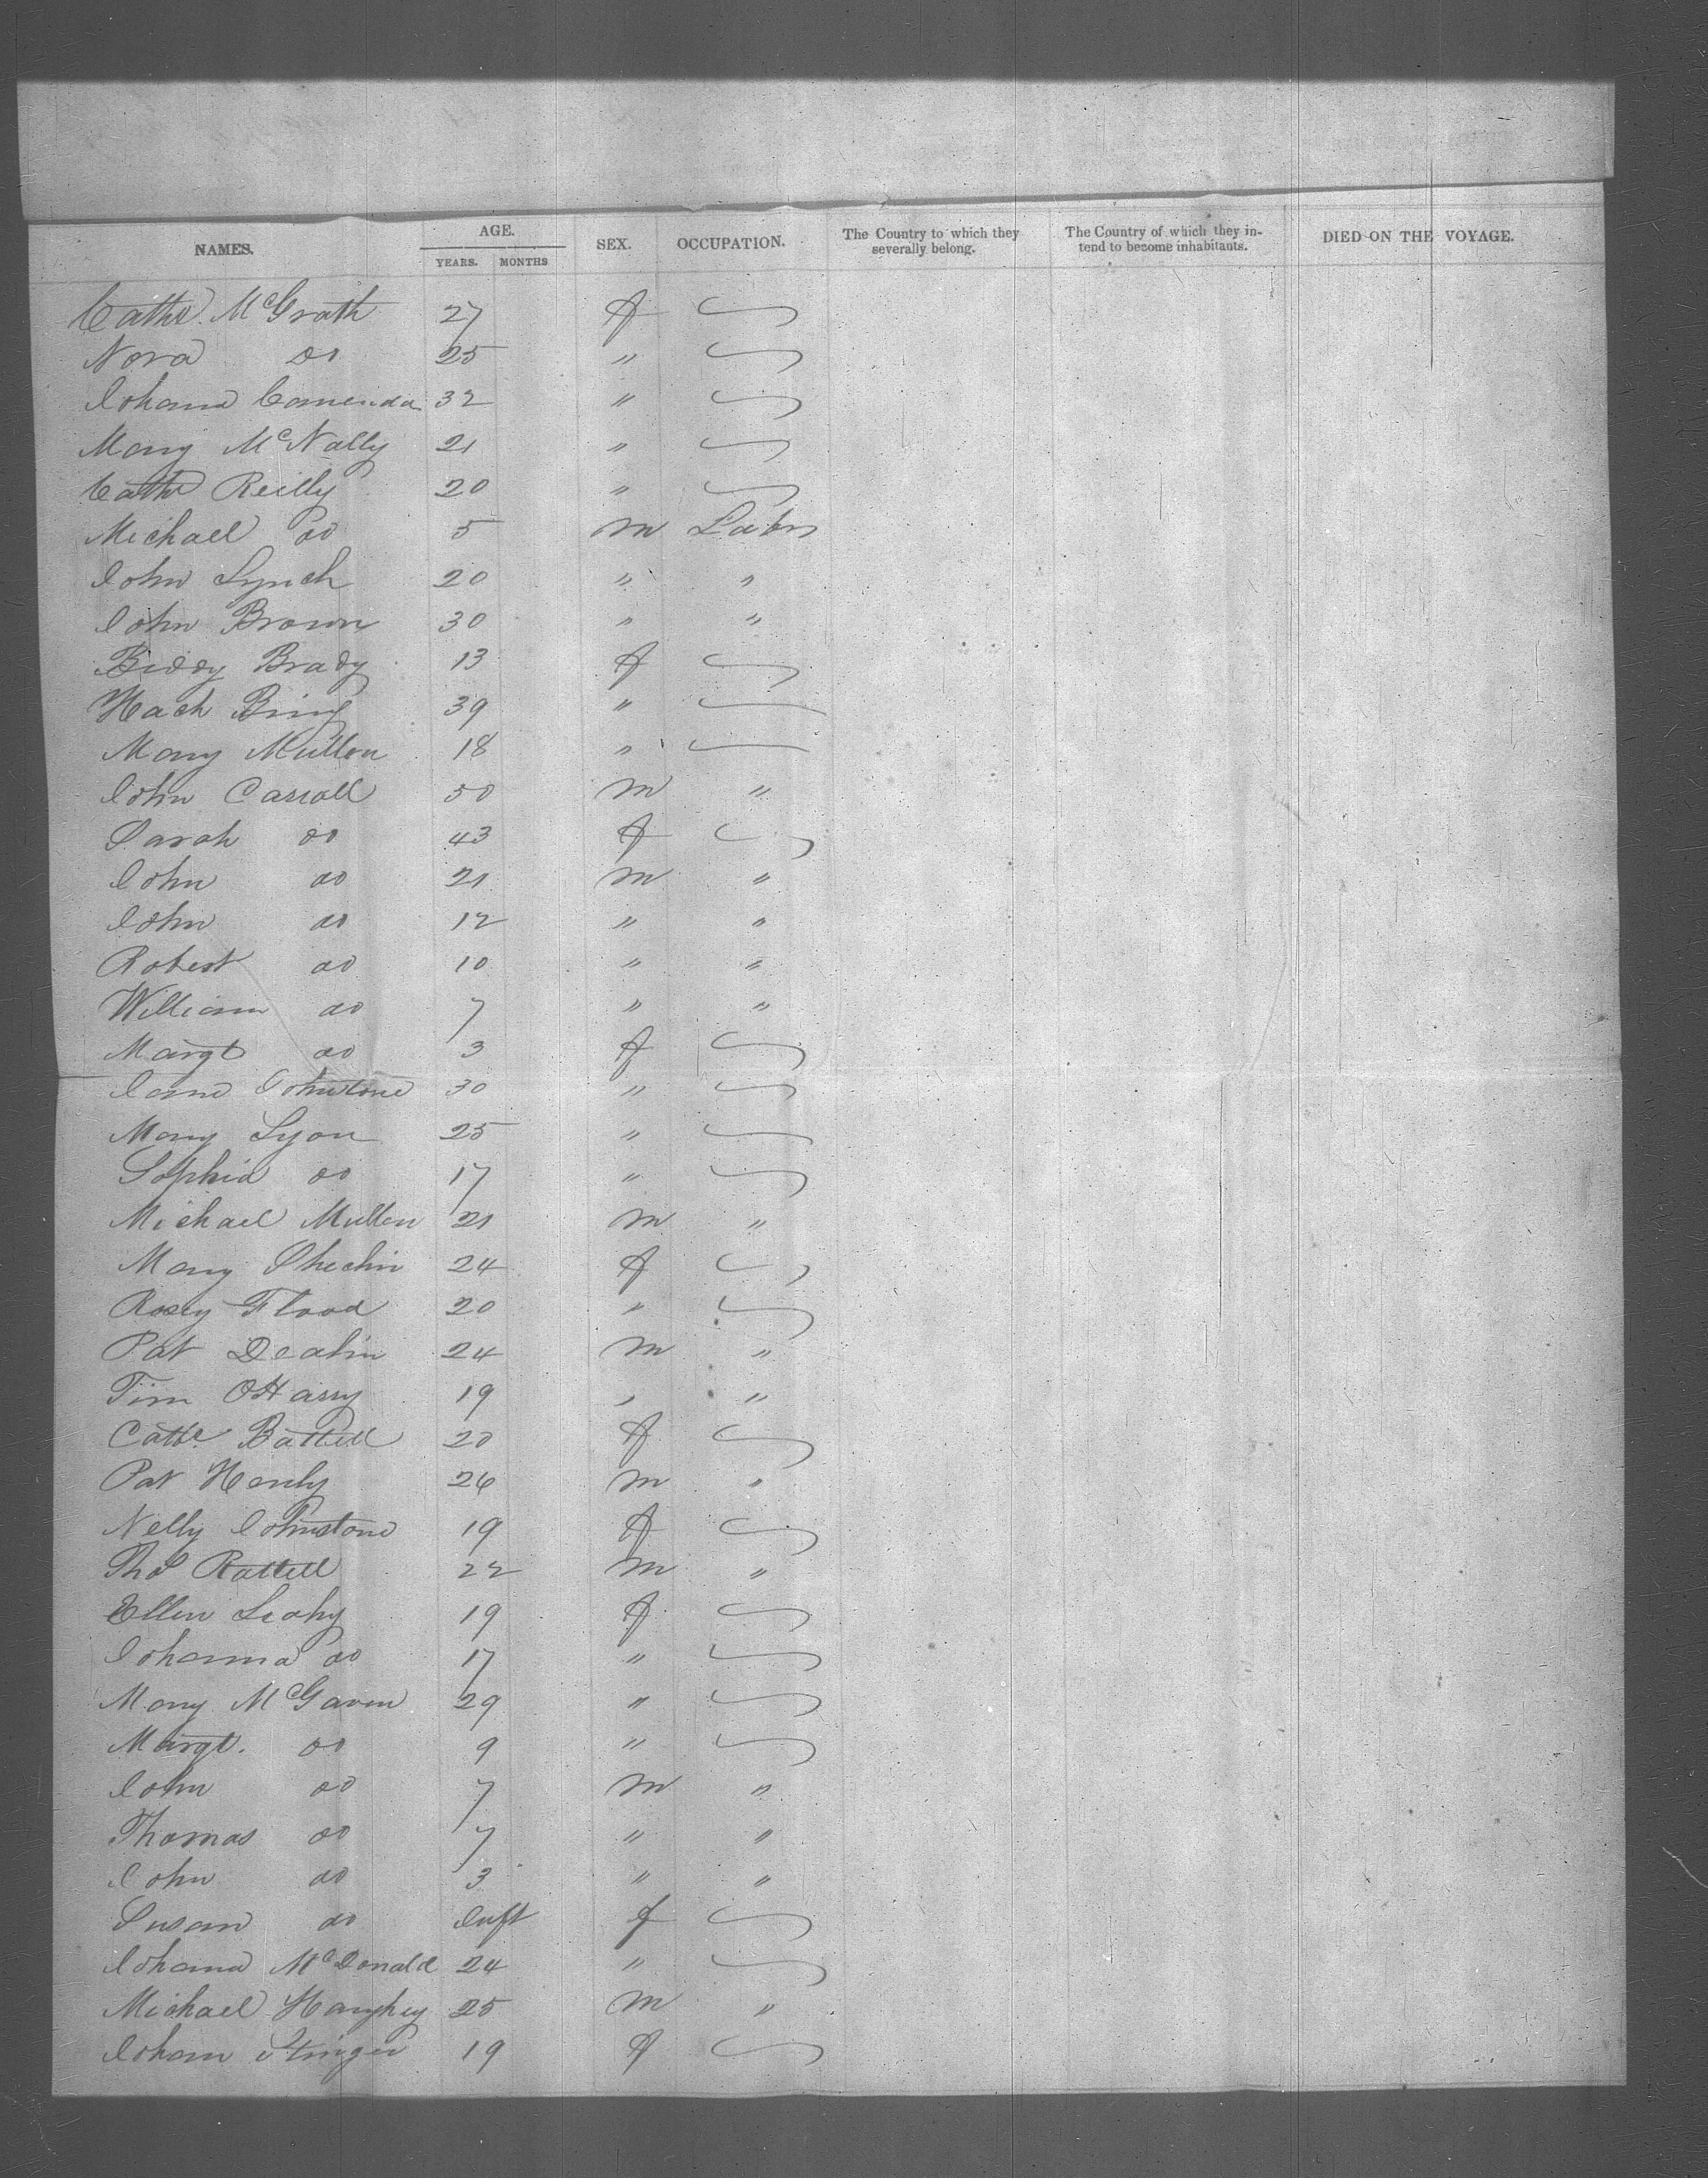 NAMES. AGE. YEARS. MONTHS SEX. OCCUPATION. The Country to which they severally belong. The Country of which they intend to become inhabitants. DIED ON THE VOYAGE.
Cathe. McGrath 27 f
Nora do 25 "
Johana 32 "
Mary McNally 21 "
Cathe Reilly 20 "
Michael do 5 m Labr
John Lynch 20 " "
John Brown 30 " "
Biddy Brady 13 f
39 "
Mary Mullen 18 "
John Carroll 50 m "
Sarah do 43 f
John do 21 m "
John do 12 " "
Robert do 10 " "
William do 7 " "
Margt do 3 f
Jane Johnstone 30 "
Mary Lyon 25 "
Sophia do 17 "
Michael Mullen 21 m "
Mary 24 f
Rosey Flood 20 "
Pat 24 m "
Tim 19 " "
Cathe. Battell 20 f
Pat Henly 26 m "
Nelly Johnstone 19 f
Thos Rattell 22 m "
Ellen Leahy 19 f
Johanna do 17 "
Mary McGaven 29 "
Margt. do 9 "
John do 7 m "
Thomas do 7 " "
John do 3 " "
Susan do Inft f
Johana McDonald 24 "
Michael Haughey 25 m "
Johan Stinger 19 f